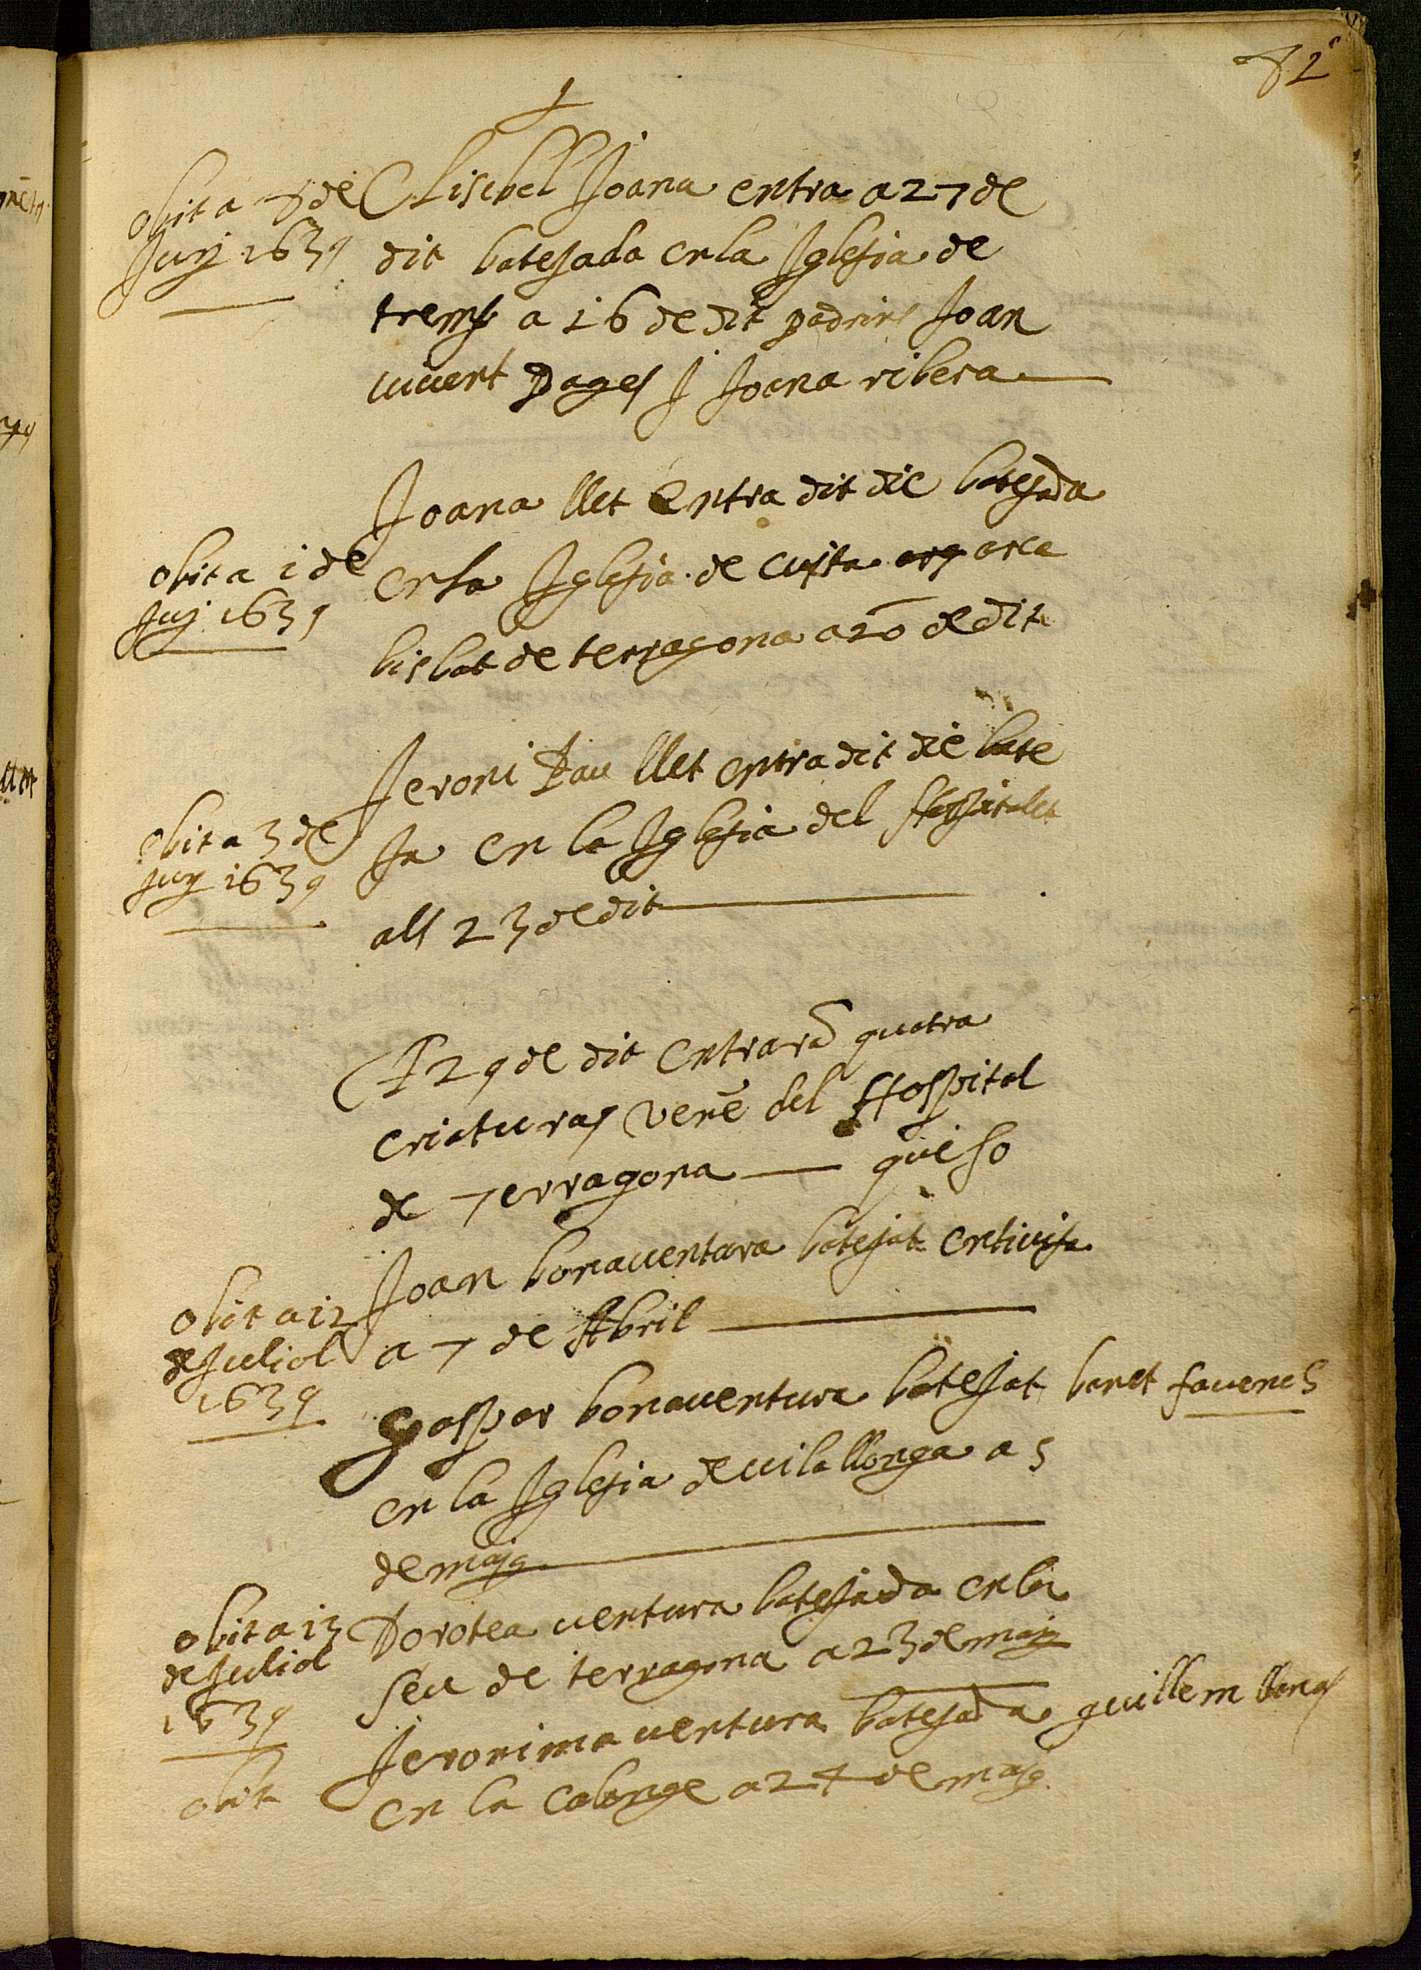 82
obit a 7 de
Juny 1639
Elisebel Joana entra a 27 de
dit batejada en la Iglesia de
tremp a 16 de dit padrins Joan
vivert Pages J Joana ribera
obit a 1 de
Juj 1639
Joana llet entra dit die batejada
en la Iglesia de arca
bisbat de terragona a 20 de dit
obit a 3 de
juny 1639
Jeroni Pau llet entra dit die bate
ja en la Iglesia del Hospitalet
als 23 de dit
A 29 de dit entrarã quatra
criaturas venẽ del Hospital
de Terragona que so
obit a 12
de Juliol
1639
Joan bonaventura batejat
a 7 de Abril
gaspar bonaventura batejat
en la Iglesia de vilallonga a 5
de maig
obit a 13
de Juliol
1639
Dorotea ventura batejada en la
seu de terragona a 23 de maig
obit
Jeronima ventura batejada guillem
en la Calonge a 24 de maig